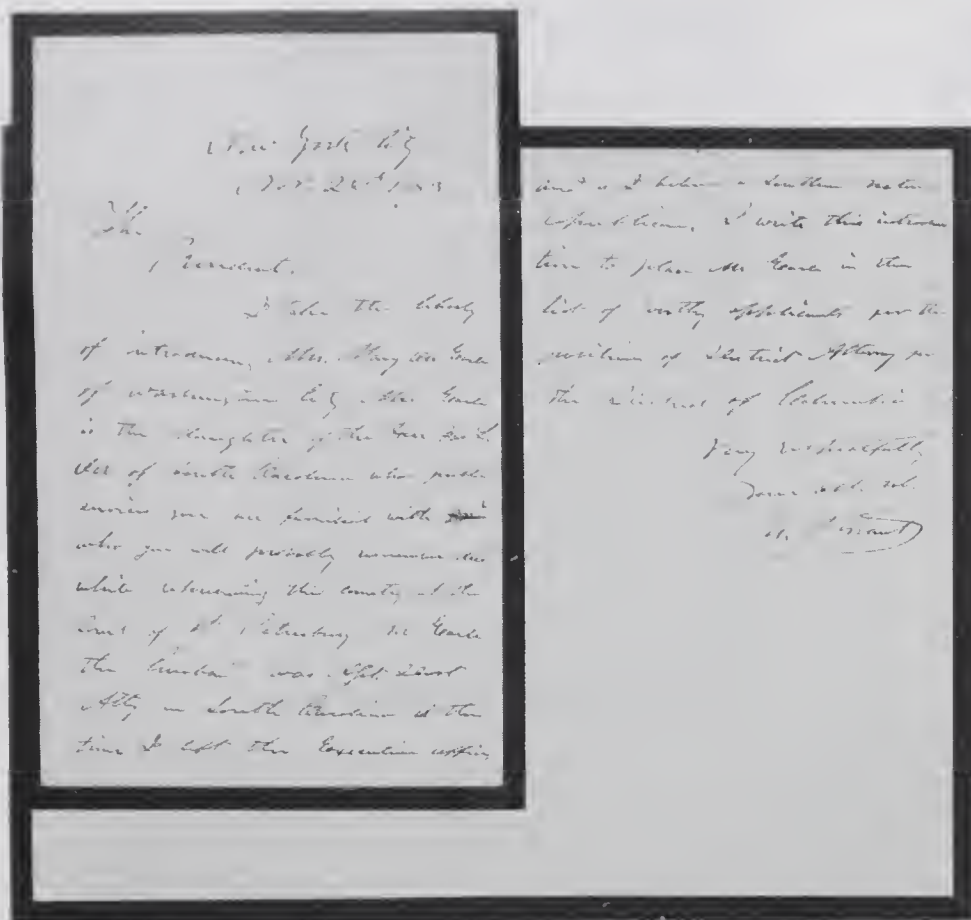 New York City
Nov. 24th
The
President.
I take the liberty
of introducing Mrs. May Orr Earle
of Washington City. Mrs. Earle
is the daughter of the Gen. Jas L.
Orr of South Carolina who public
services you are familiar with
who you will probably remember
while representing this country at the
Court of St. Petersburg Mr Earle
the husband was Dist
Atty in South Carolina at the
time I left the Executive office,
and is I believe a Southern
republican. I write this introduc
tion to place Mr Earle in the
list of worthy applicants for the
position of District Attorney for
the District of Columbia
Very respectfully
Your obt. svt.
U. S. Grant